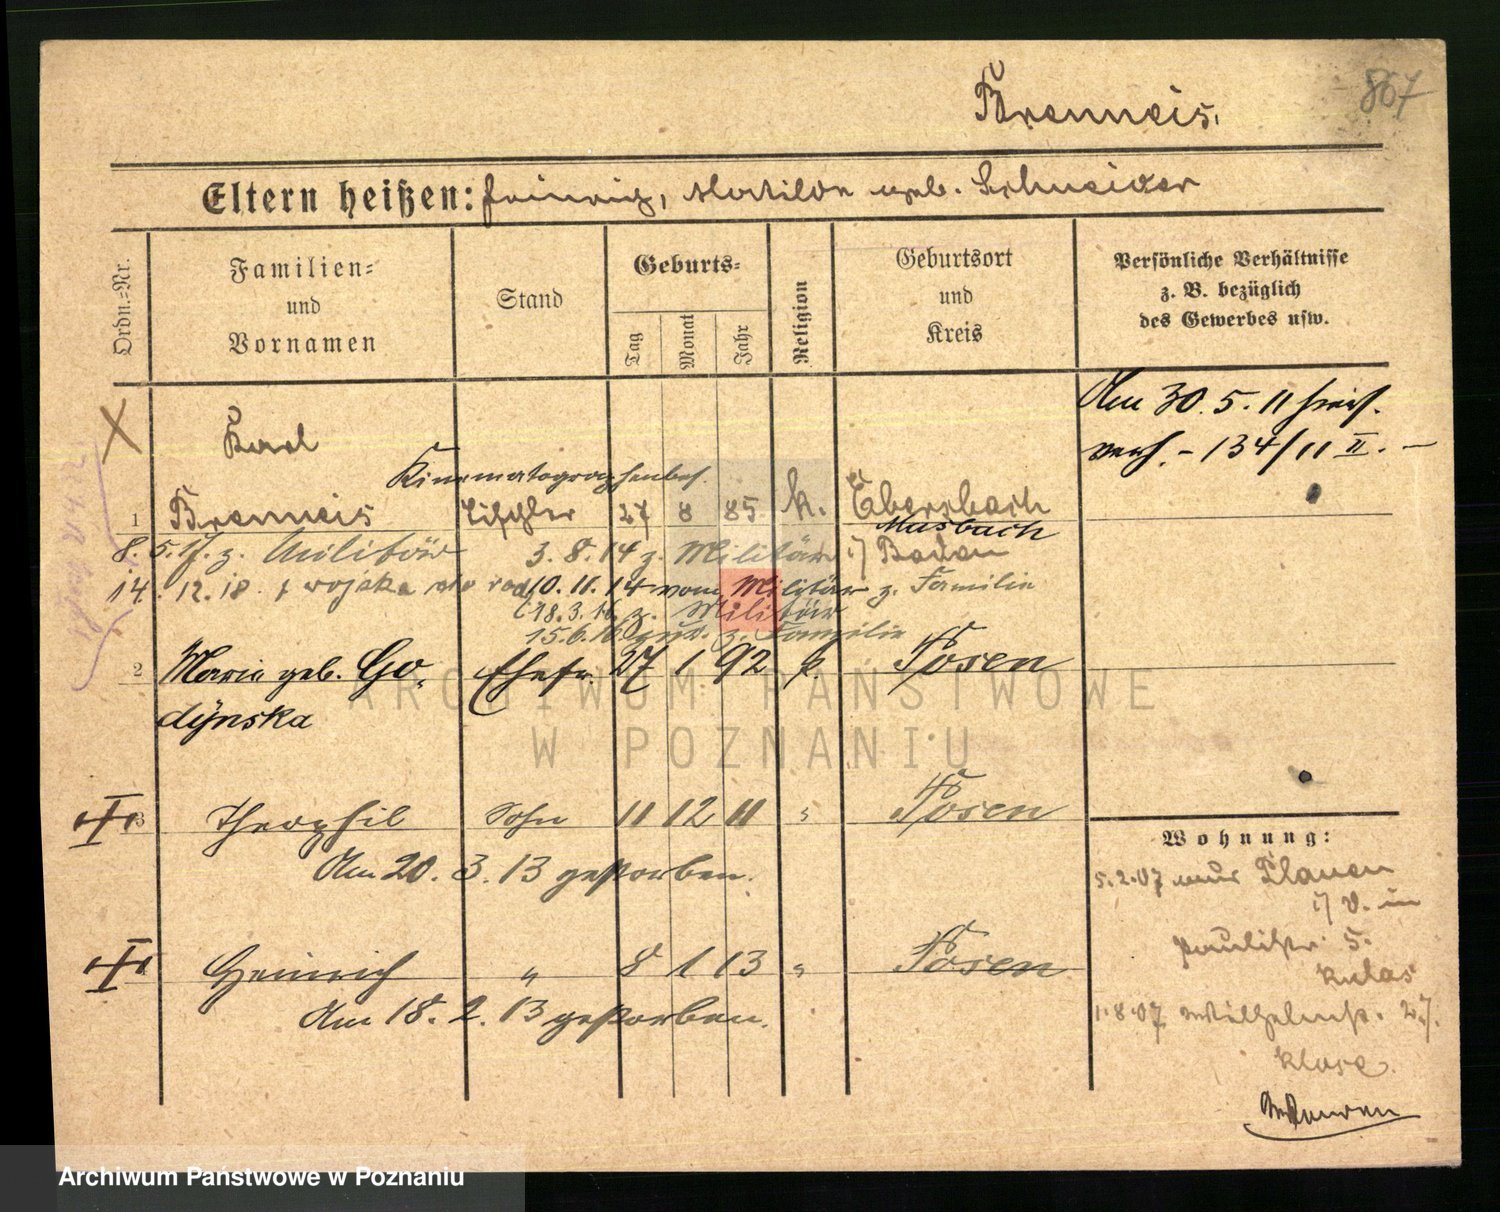 867
Brenneis.
Eltern heißen: Heinrich, Matilde geb. Schneider
Ordn.=Nr.
Familien= und Vornamen
Stand
Geburts=
Tag
Monat
Jahr
Religion
Geburtsort und Kreis
Persönliche Verhältnisse z. B. bezüglich des Gewerbes usw.
Am 30. 5. 11
verh. - 134/11 II. -
Karl
Kinematographenbes.
1 Brenneis Tischler 27 8 85. k. Ebersbach
Musbach
8. 5. z. Militär 3. 8. 14 z. Militär i/ Baden
14. 12. 18. z wojska 10. 11. 14 vom Militär z. Familie
18. 3. 16 z. Militär
15. 6. 16 z. Familie
2 Marie geb. Go- Ehefr. 27 1 92 k. Posen
dynska
ARCHIWUM PAŃSTWOWE
W POZNANIU
3 Theophil Sohn 11 12 11 " Posen
Am 20. 3. 13 gestorben.
Heinrich " 8 1 13 " Posen
Am 18. 2. 13 gestorben.
Wohnung:
5. 2. 07 aus Plauen
i/ V. in
Paulistr. 5.
1. 8. 07 Wilhelmstr. 27.
Archiwum Państwowe w Poznaniu